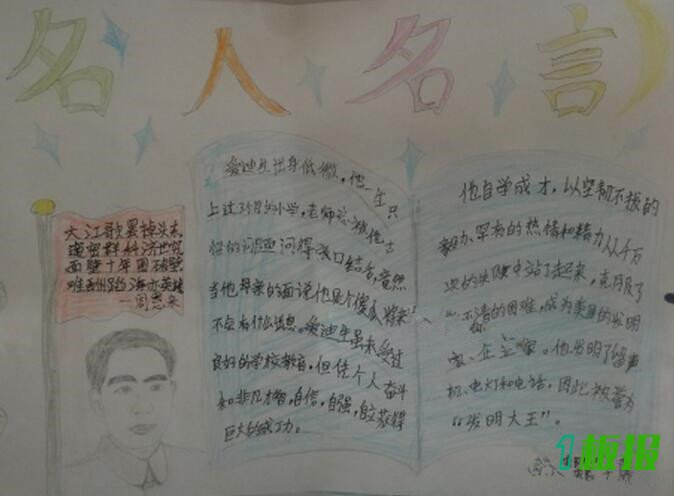 名人名言
大江歌罢掉头东
邃密群科济世穷
面壁十年图破壁
难酬蹈海亦英雄
—周恩来
爱迪生出身低微，他一生只
上过3个月的小学，老师总被他古
怪的问题问得张口结舌，竟然
当他母亲的面说他是个傻瓜，将来
不会有什么出息。爱迪生虽未受过
良好的学校教育，但凭个人奋斗
和非凡才智，自信，自强，自立获得
巨大的成功。
他自学成才，以坚韧不拔的
毅力、罕有的热情和精力从千万
次的失败中站了起来，克服了
不清的困难，成为美国的发明
家、企业家。他发明了留声
机、电灯和电话，因此被誉为
“发明大王”。
1板报